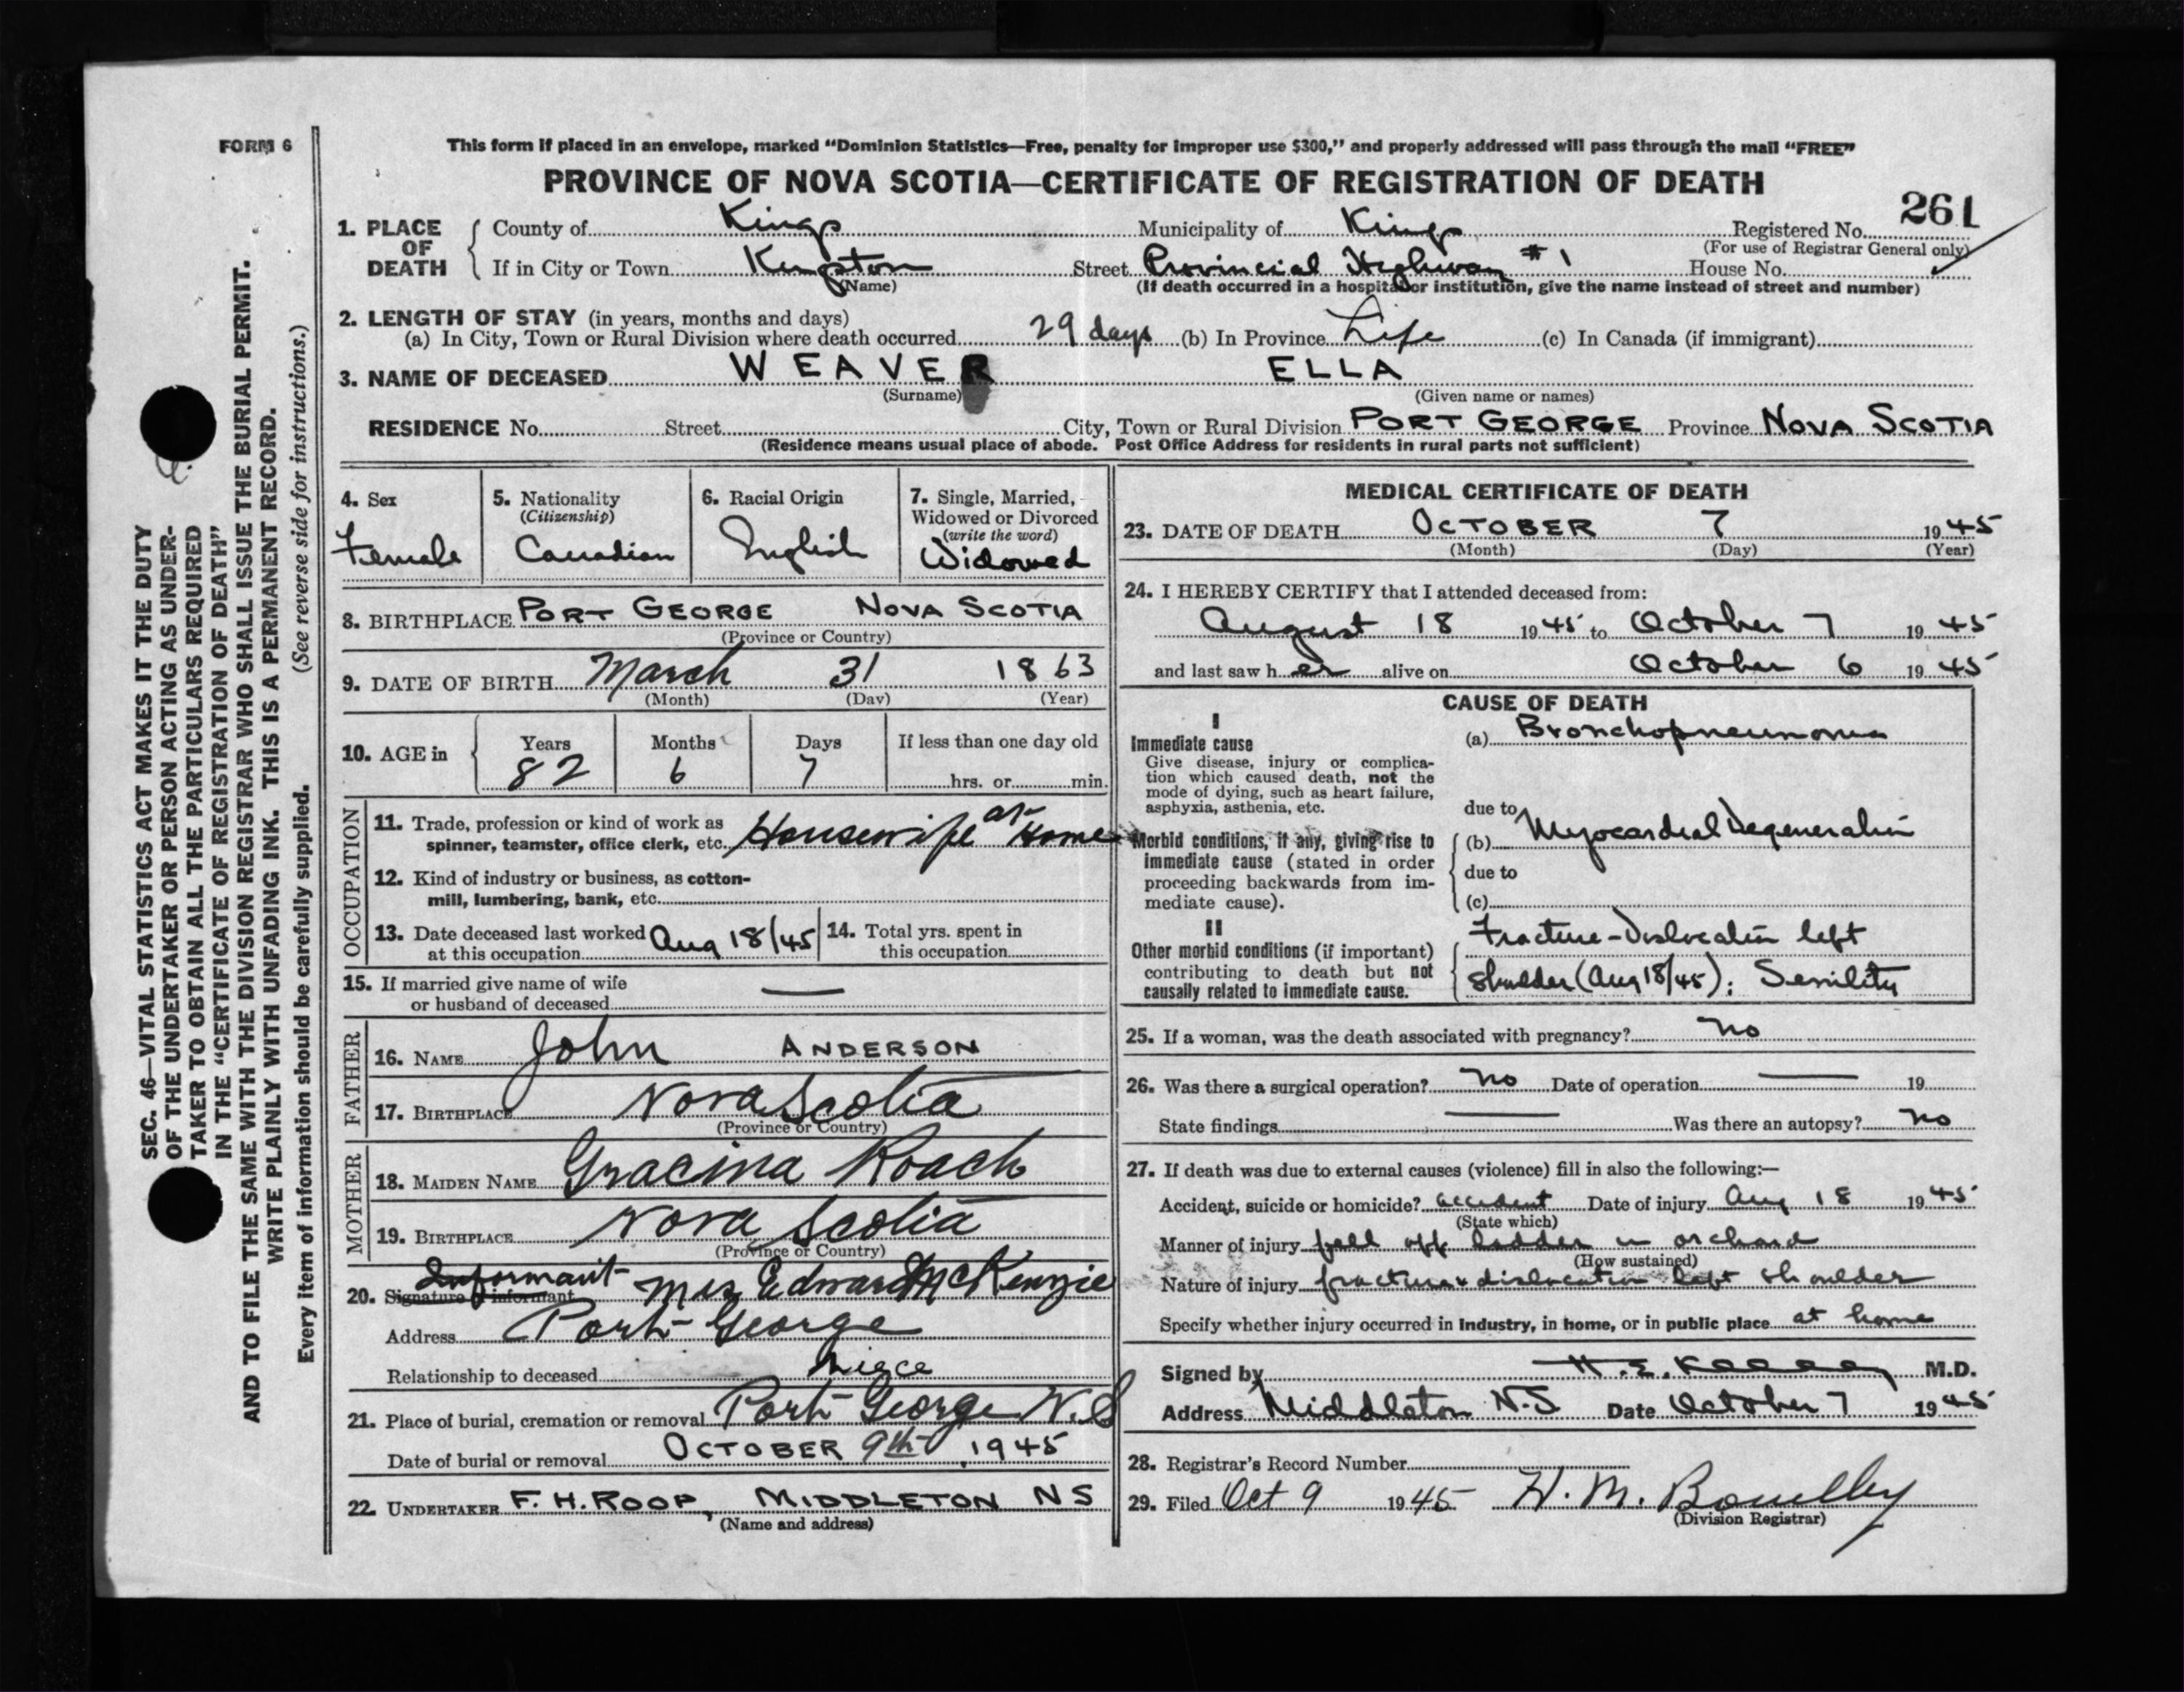 FORM 6
This form if placed in an envelope, marked “Dominion Statistics—Free, penalty for improper use $300,” and properly addressed will pass through the mail “FREE”
PROVINCE OF NOVA SCOTIA—CERTIFICATE OF REGISTRATION OF DEATH
261
1. PLACE OF DEATH County of Kings Municipality of Kings Registered No.
(For use of Registrar General only)
If in City or Town Kingston Street Provincial Highway #1 House No.
(Name) (If death occurred in a hospital or institution, give the name instead of street and number)
2. LENGTH OF STAY (in years, months and days)
(a) In City, Town or Rural Division where death occurred 29 days (b) In Province Life (c) In Canada (if immigrant)
3. NAME OF DECEASED WEAVER ELLA
(Surname) (Given name or names)
RESIDENCE No. Street City, Town or Rural Division PORT GEORGE Province NOVA SCOTIA
(Residence means usual place of abode. Post Office Address for residents in rural parts not sufficient)
4. Sex
Female
5. Nationality
(Citizenship)
Canadian
6. Racial Origin
English
7. Single, Married,
Widowed or Divorced
(write the word)
Widowed
8. BIRTHPLACE PORT GEORGE NOVA SCOTIA
(Province or Country)
9. DATE OF BIRTH March 31 1863
(Month) (Day) (Year)
10. AGE in Years Months Days If less than one day old
82 6 7 hrs. or min.
OCCUPATION
11. Trade, profession or kind of work as
spinner, teamster, office clerk, etc. Housewife at Home
12. Kind of industry or business, as cotton-
mill, lumbering, bank, etc.
13. Date deceased last worked
at this occupation Aug 18/45
14. Total yrs. spent in
this occupation
15. If married give name of wife
or husband of deceased —
FATHER
16. NAME John ANDERSON
17. BIRTHPLACE Nova Scotia
(Province or Country)
MOTHER
18. MAIDEN NAME Gracina Roach
19. BIRTHPLACE Nova Scotia
(Province or Country)
Informant
20. Signature of informant Mrs Edward McKenzie
Address Port George
Relationship to deceased Niece
21. Place of burial, cremation or removal Port George N.S
Date of burial or removal OCTOBER 9th, 1945
22. UNDERTAKER F. H. ROOP, MIDDLETON NS
(Name and address)
MEDICAL CERTIFICATE OF DEATH
23. DATE OF DEATH OCTOBER 7 1945
(Month) (Day) (Year)
24. I HEREBY CERTIFY that I attended deceased from:
August 18 1945 to October 7 1945
and last saw her alive on October 6 1945
CAUSE OF DEATH
I
Immediate cause
Give disease, injury or complica-
tion which caused death, not the
mode of dying, such as heart failure,
asphyxia, asthenia, etc.
(a) Bronchopneumonia
due to
Morbid conditions, if any, giving rise to
immediate cause (stated in order
proceeding backwards from im-
mediate cause).
(b) Myocardial Degeneration
due to
(c)
II
Other morbid conditions (if important)
contributing to death but not
causally related to immediate cause.
Fracture-Dislocation left
shoulder (Aug 18/45); Senility
25. If a woman, was the death associated with pregnancy? no
26. Was there a surgical operation? no Date of operation — 19
State findings — Was there an autopsy? no
27. If death was due to external causes (violence) fill in also the following:—
Accident, suicide or homicide? accident Date of injury Aug 18 1945
(State which)
Manner of injury fell off ladder in orchard
(How sustained)
Nature of injury fracture & dislocation left shoulder
Specify whether injury occurred in industry, in home, or in public place at home
Signed by H. E. M.D.
Address Middleton N.S Date October 7 1945
28. Registrar's Record Number
29. Filed Oct 9 1945 H. M.
(Division Registrar)
SEC. 46—VITAL STATISTICS ACT MAKES IT THE DUTY
OF THE UNDERTAKER OR PERSON ACTING AS UNDER-
TAKER TO OBTAIN ALL THE PARTICULARS REQUIRED
IN THE “CERTIFICATE OF REGISTRATION OF DEATH”
AND TO FILE THE SAME WITH THE DIVISION REGISTRAR WHO SHALL ISSUE THE BURIAL PERMIT.
WRITE PLAINLY WITH UNFADING INK. THIS IS A PERMANENT RECORD.
Every item of information should be carefully supplied. (See reverse side for instructions.)